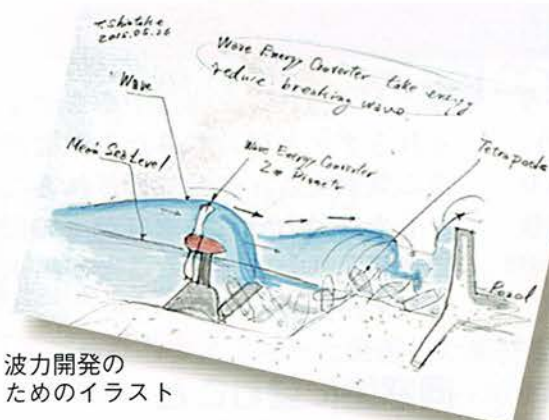 T. Shintake
2015.05.26
Wave Energy Converter take energy
reduce breaking wave.
Wave
Mean Sea Level
Wave Energy Converter
Tetrapods
波力開発の
ためのイラスト